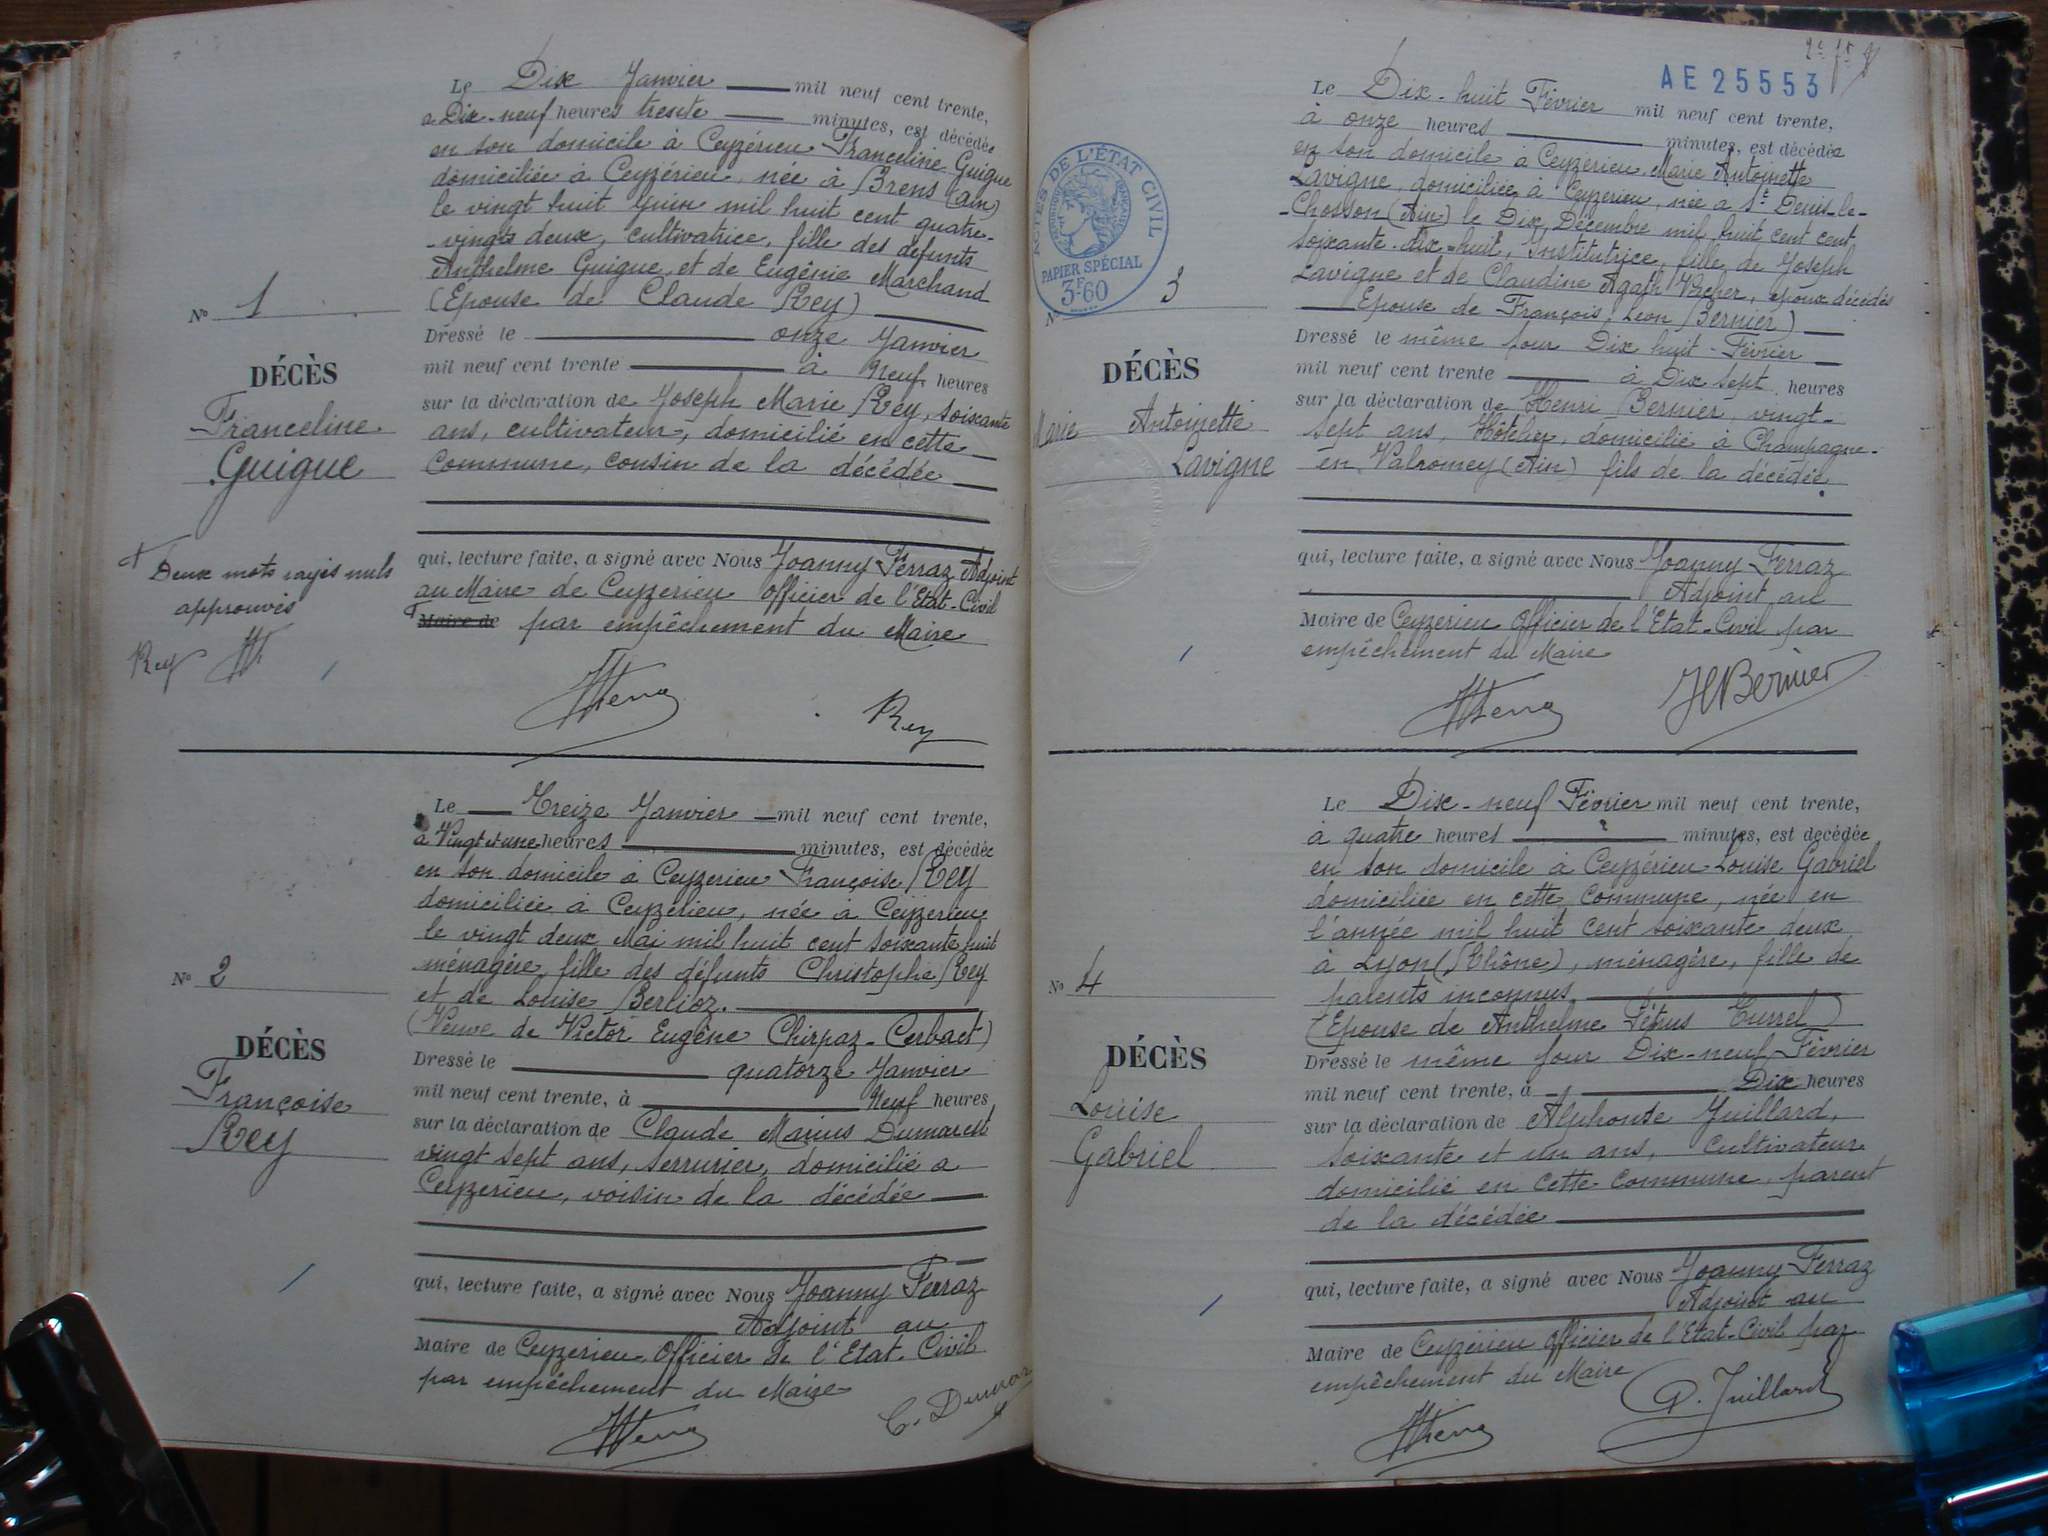 Le Dix Janvier mil neuf cent trente,
à Dix-neuf heures trente minutes, est décédée
en son domicile à Ceyzérieu Franceline Guigue
domiciliée à Ceyzérieu, née à Brens (Ain)
le vingt huit Juin mil huit cent quatre-
-vingts deux, cultivatrice, fille des défunts
Anthelme Guigue et de Eugénie Marchand
(Epouse de Claude Rey)
No 1
Dressé le onze Janvier
mil neuf cent trente à Neuf heures
DÉCÈS
Franceline
Guigue
sur la déclaration de Joseph Marie Rey, soixante
ans, cultivateur, domicilié en cette
Commune, cousin de la décédée
Deux mots rayés nuls
approuvés
Rey
qui, lecture faite, a signé avec Nous Joanny Ferraz Adjoint
au Maire de Ceyzerieu Officier de l'Etat-Civil
Maire de par empêchement du Maire
Rey
Le Treize Janvier mil neuf cent trente,
à Vingt et une heures minutes, est décédée
en son domicile à Ceyzerieu Françoise Rey
domiciliée a Ceyzerieu, née à Ceyzerieu
le vingt deux Mai mil huit cent soixante huit
ménagère, fille des défunts Christophe Rey
et de Louise Berlioz.
(Veuve de Victor Eugène Chirpaz-Cerbact)
No 2
DÉCÈS
Françoise
Rey
Dressé le quatorze Janvier
mil neuf cent trente, à Neuf heures
sur la déclaration de Claude Marius Dumarest
vingt sept ans, serrurier, domicilié a
Ceyzerieu, voisin de la décédée
qui, lecture faite, a signé avec Nous Joanny Ferraz
Adjoint au
Maire de Ceyzerieu Officier de l'Etat-Civil
par empêchement du Maire
AE 25553
ACTES DE L'ÉTAT CIVIL
PAPIER SPÉCIAL
3F60
Le Dix-huit Février mil neuf cent trente,
à onze heures minutes, est décédée
en son domicile à Ceyzerieu Marie Antoinette
Lavigne, domiciliée à Ceyzerieu, née à St Denis-le-
-Chosson (Ain) le Dix Décembre mil huit cent cent
soixante-dix-huit, Institutrice, fille de Joseph
Lavigne et de Claudine Agath, époux décédés
Epouse de François, Léon Bernier)
No 3
DÉCÈS
Marie Antoinette
Lavigne
Dressé le même jour Dix huit-Février
mil neuf cent trente à Dix sept heures
sur la déclaration de Henri Bernier, vingt-
sept ans, Hôtelier, domicilié à Champagne-
en Valromey (Ain) fils de la décédée
qui, lecture faite, a signé avec Nous Joanny Ferraz
Adjoint au
Maire de Ceyzerieu Officier de l'Etat-Civil par
empêchement du Maire
HBernier
Le Dix-neuf Février mil neuf cent trente,
à quatre heures minutes, est décédée
en son domicile à Ceyzérieu Louise Gabriel
domiciliée en cette Commune, née en
l'année mil huit cent soixante deux
à Lyon (Rhône), ménagère, fille de
parents inconnus
(Epouse de Anthelme Pétrus Turrel)
No 4
DÉCÈS
Louise
Gabriel
Dressé le même jour Dix-neuf Février
mil neuf cent trente, à Dix heures
sur la déclaration de Alphonse Juillard,
soixante et un ans, Cultivateur
domicilié en cette Commune, parent
de la décédée
qui, lecture faite, a signé avec Nous Joanny Ferraz
Adjoint au
Maire de Ceyzérieu Officier de l'Etat-Civil par
empêchement du Maire
A. Juillard